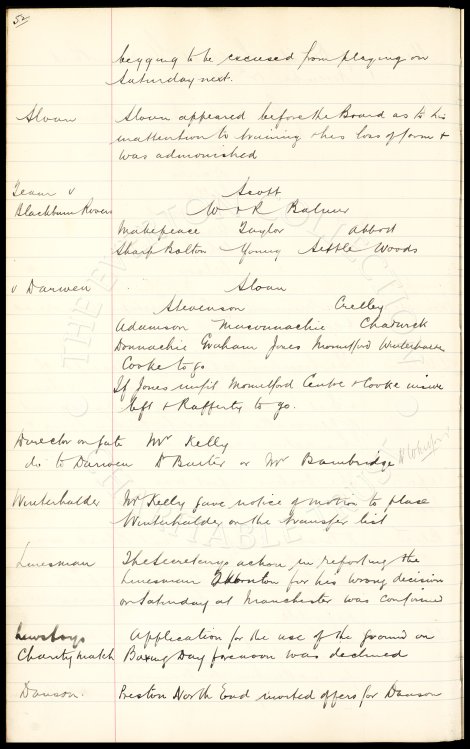 52
begging to be excused from playing on
Saturday next.
Sloan Sloan appeared before the Board as to his
inattention to training & his loss of form &
was admonished
Team v Scott
Blackburn Rovers W & R Balmer
Makepeace Taylor Abbott
Sharp Bolton Young Settle Woods
v Darwen Sloan
Stevenson Crelley
Adamson Macconnachie Chadwick
Donnachie Graham Jones Mountford Winterhalder
Cooke to go
If Jones unfit Mountford Centre & Cooke inside
left & Rafferty to go.
Director on gate Mr Kelly
do to Darwen Dr Baxter or Mr Bainbridge
Winterhalder Mr Kelly gave notice of motion to place
Winterhalder on the transfer list
Linesman The Secretarys action in reporting the
Linesman for his wrong decision
on Saturday at Manchester was confirmed
Newsboys Application for the use of the ground on
Charity match Boxing Day forenoon was declined
Dawson. Preston North End invited offers for Dawson
THE EVERTON COLLECTION
CHARITABLE TRUST